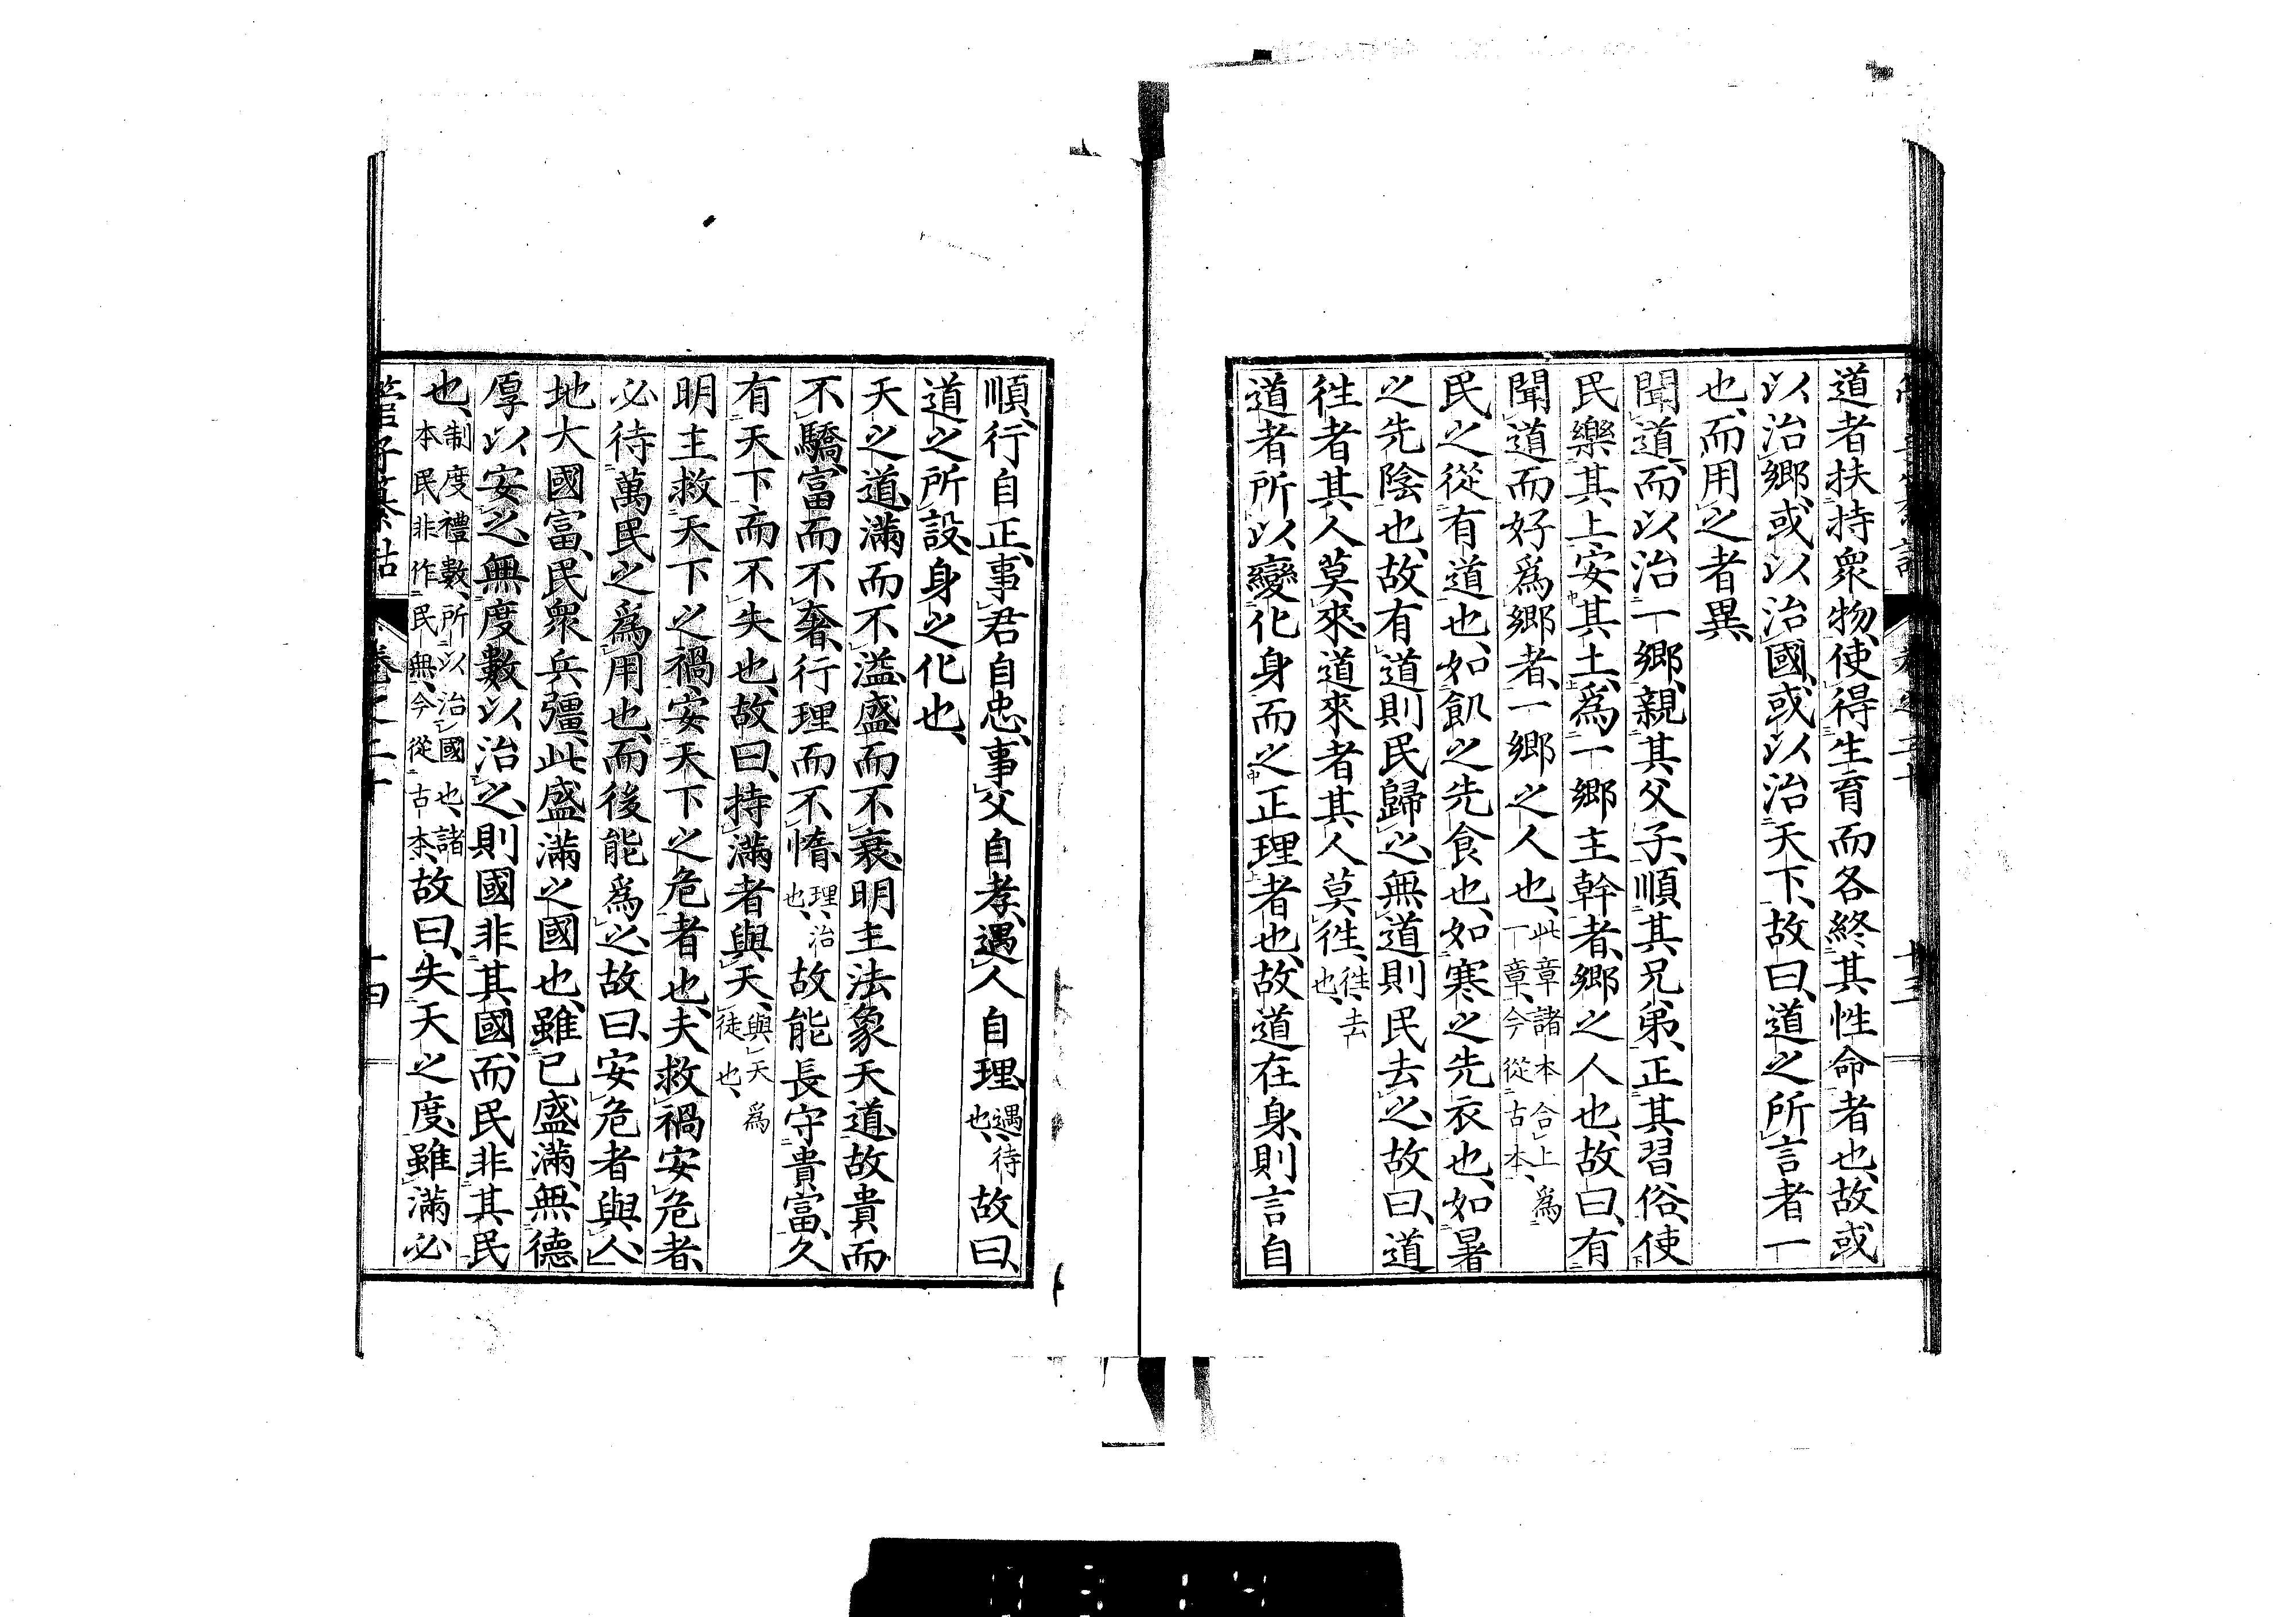 道者扶持衆物、使得生育而各終其性命者也、故或
以治鄉、或以治國、或以治天下、故曰、道之所言者一
也、而用之者異、
聞道、而以治一鄉、親其父子、順其兄弟、正其習俗、使
民樂其上安其土、爲一鄉主幹者、鄉之人也、故曰、有
聞道而好爲鄉者、一鄉之人也、此章諸本合上爲一章、今從古本、
民之從有道也、如飢之先食也、如寒之先衣也、如暑
之先陰也、故有道則民歸之、無道則民去之、故曰、道
往者其人莫來、道來者其人莫往、往、去也、
道者所以變化身而之正理者也、故道在身、則言自
順、行自正、事君自忠、事父自孝、遇人自理、遇、待也、故曰、
道之所設、身之化也、
天之道、滿而不溢、盛而不衰、明主法象天道、故貴而
不驕、富而不奢、行理而不惰、理、治也、故能長守貴富、久
有天下而不失也、故曰、持滿者與天、與天爲徒也、
明主救天下之禍、安天下之危者也、夫救禍安危者、
必待萬民之爲用也、而後能爲之、故曰、安危者與人、
地大國富、民衆兵彊、此盛滿之國也、雖已盛滿、無德
厚以安之、無度數以治之、則國非其國、而民非其民
也、制度禮數、所以治國也、諸本民非作民無、今從古本、故曰、失天之度、雖滿必
管子纂詁 卷之二十 十四